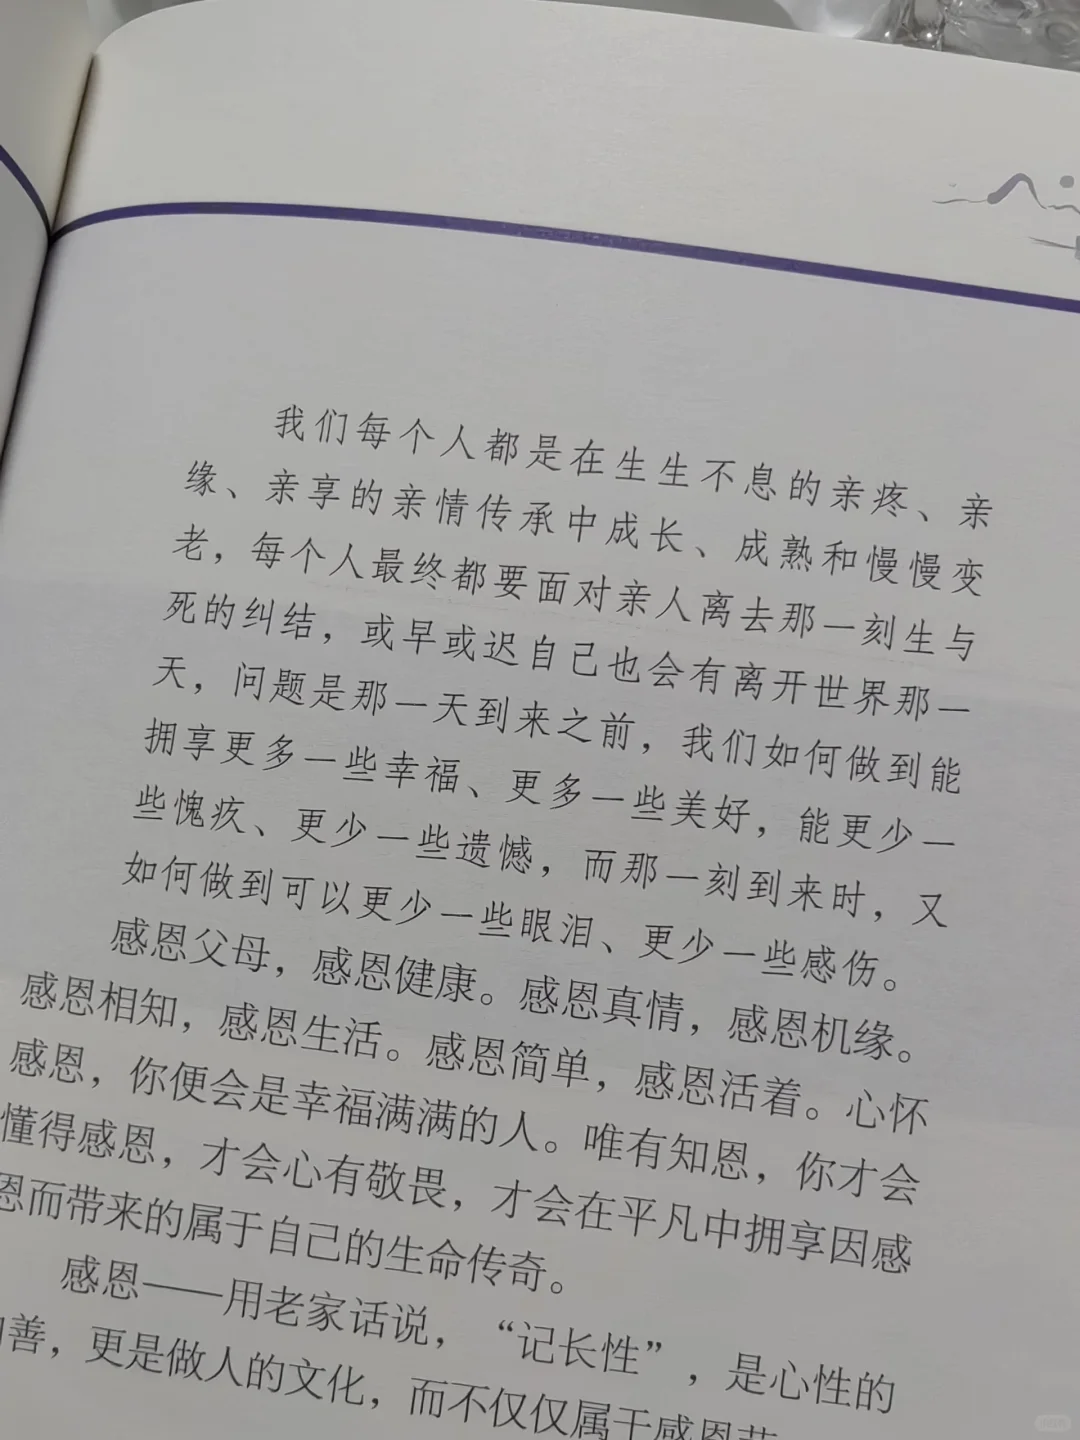 我们每个人都是在生生不息的亲疼、亲
缘、亲享的亲情传承中成长、成熟和慢慢变
老，每个人最终都要面对亲人离去那一刻生与
死的纠结，或早或迟自己也会有离开世界那一
天，问题是那一天到来之前，我们如何做到能
拥享更多一些幸福、更多一些美好，能更少一
些愧疚、更少一些遗憾，而那一刻到来时，又
如何做到可以更少一些眼泪、更少一些感伤。
感恩父母，感恩健康。感恩真情，感恩机缘。
感恩相知，感恩生活。感恩简单，感恩活着。心怀
感恩，你便会是幸福满满的人。唯有知恩，你才会
懂得感恩，才会心有敬畏，才会在平凡中拥享因感
恩而带来的属于自己的生命传奇。
感恩——用老家话说，“记长性”，是心性的
善，更是做人的文化，而不仅仅属于感恩节